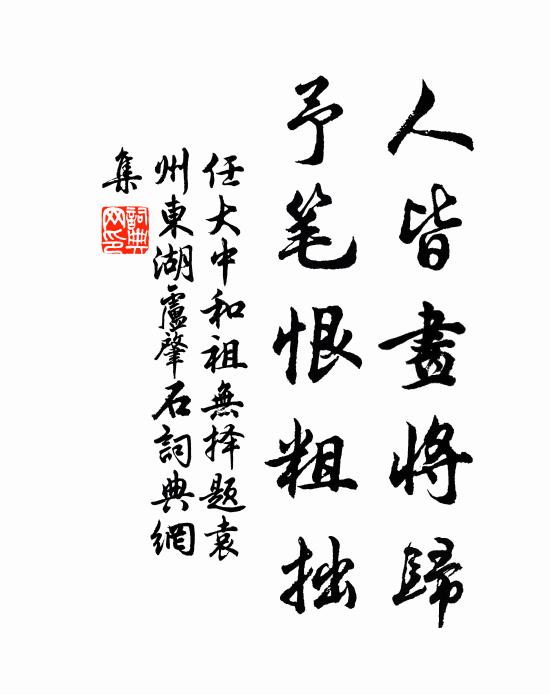 人皆畫將歸
予笔恨粗拙
任大中和祖無择题袁
州東湖盧肇石詞典網
集
詞典網印